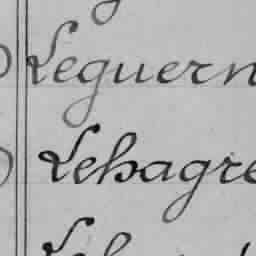 Leguern
Lehagre